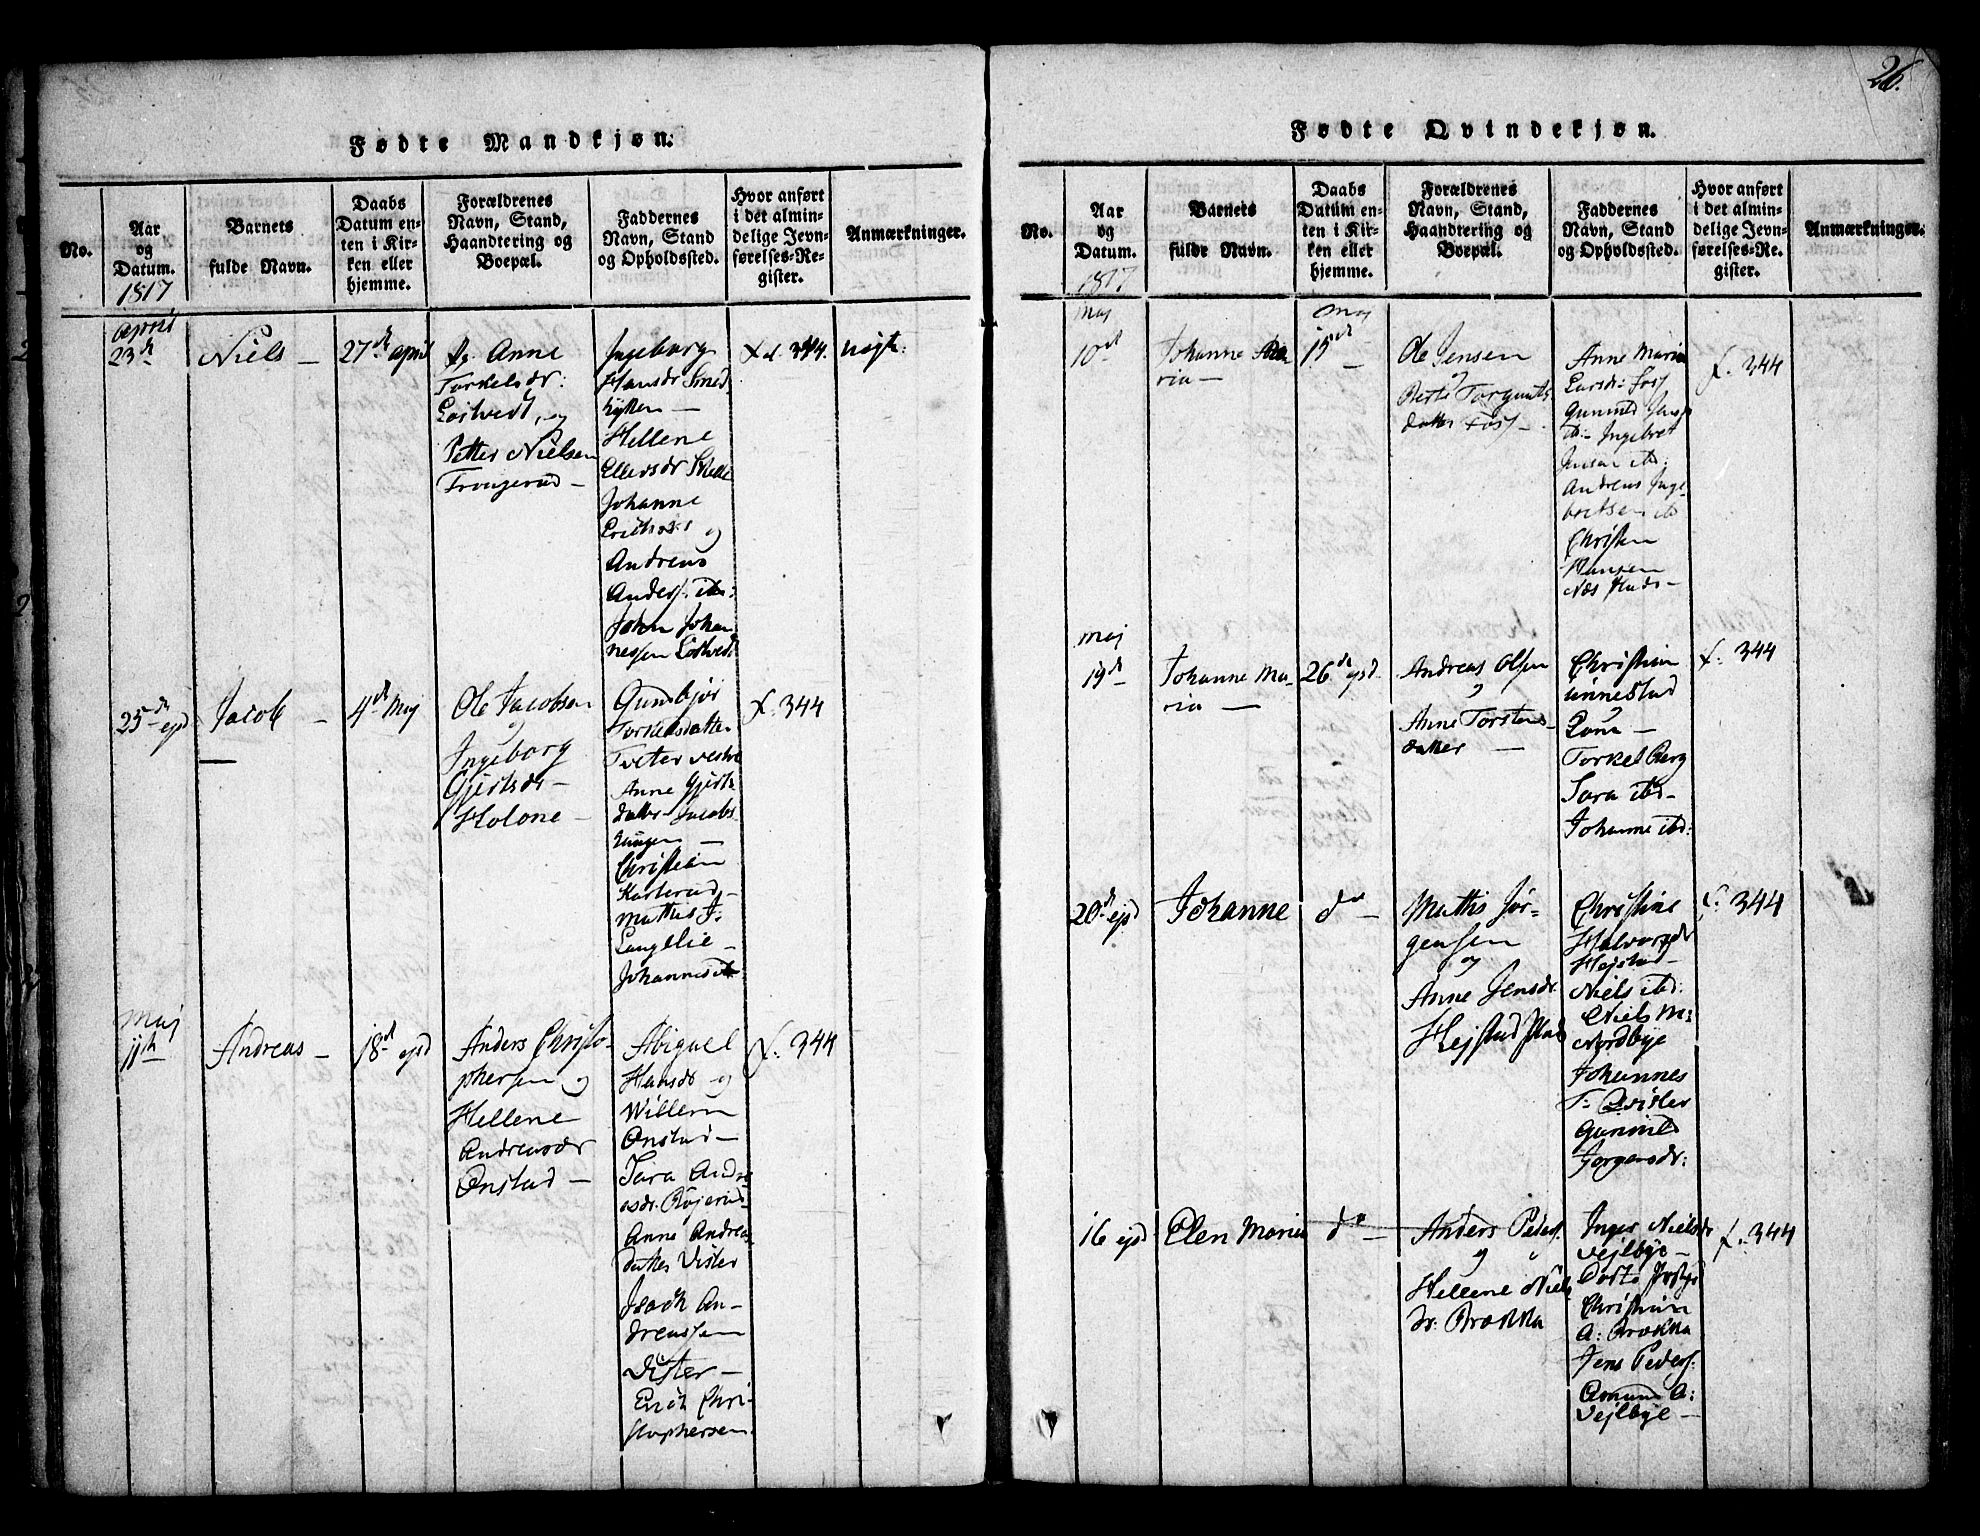 26.
Fødte Mandkjøn.
No.
Aar og Datum.
1817
Barnets fulde Navn.
Daabs Datum enten i Kirken eller hjemme.
Forældrenes Navn, Stand, Haandtering og Boepæl.
Faddernes Navn, Stand og Opholdssted.
Hvor anført i det almindelige Jevnførelses-Register.
Anmærkninger.
April
23de
Niels —
27de april
Anne
Torkelsdr:
Lostvedt, og
Petter Nielsen
Trongerud —
Ingeborg
Hansdr
Hellene
Ellersdr
Johanne
og
Andreas
Anders. ibd:
John Johan
nessen Lostvedt
344.
25de ejsd
Jacob —
4de Maj
Ole Jacobsen
og
Ingeborg
Gjertsdr —
Holone —
Gundbjør
Torkelsdatter
Tveter vestre
Anne Gjerts
datter Jacobs
Christian
Mathis J:
Langelie —
Johannes ibd
f. 344
Maj
11te
Andreas —
18de ejsd
Anders Christo-
phersen og
Hellene
Andreasdr
Onstad —
Abiguel
Hansdr og
Willem
Onstad —
Sara Andre
asdr. Røjerud
Anne Andreas
datter Vister
Isach An-
dreassen
Vister —
Erich Chri-
stophersen
f. 344
Fødte Qvindekjøn.
No.
Aar og Datum.
1817
Barnets fulde Navn.
Daabs Datum enten i Kirken eller hjemme.
Forældrenes Navn, Stand, Haandtering og Boepæl.
Faddernes Navn, Stand og Opholdssted.
Hvor anført i det almindelige Jevnførelses-Register.
Anmærkninger.
maj
10de
Johanne Ma
ria —
maj
15de
Ole Jensen
og
Berte Torgunds
datter Foss —
Anne Maria
Larsdr: Foss
Gunnild Jens
dr: Ingebret
Jensen ibd:
Andreas Inge-
bretsen ibd
Christen
Hansen
f. 344
maj
19de
Johanne Ma-
ria —
26de ejsd
Andreas Olsen
og
Anne Torstens
datter —
Christian
Unnestad
Torkel Berg
Sara ibd —
Johanne ibd:
f: 344
20de ejsd
Johanne
do —
Mathis Jør-
gensen
og
Anne Jensdr
Hejstad
Christine
Halvorsdr
Hejstad —
Niels ibd:
Niels M:
Nordbye
Johannes
T: Qvister
Gunnild
Jørgensdr:
f: 344
16 ejsd
Elen Marie
do —
Anders Peders.
og
Hellene Niels
dr: Brækka
Inger Nielsdr
Vejlbye —
Christian
A: Brækka
Jens Peders.
Amund A:
Vejlbye —
f. 344